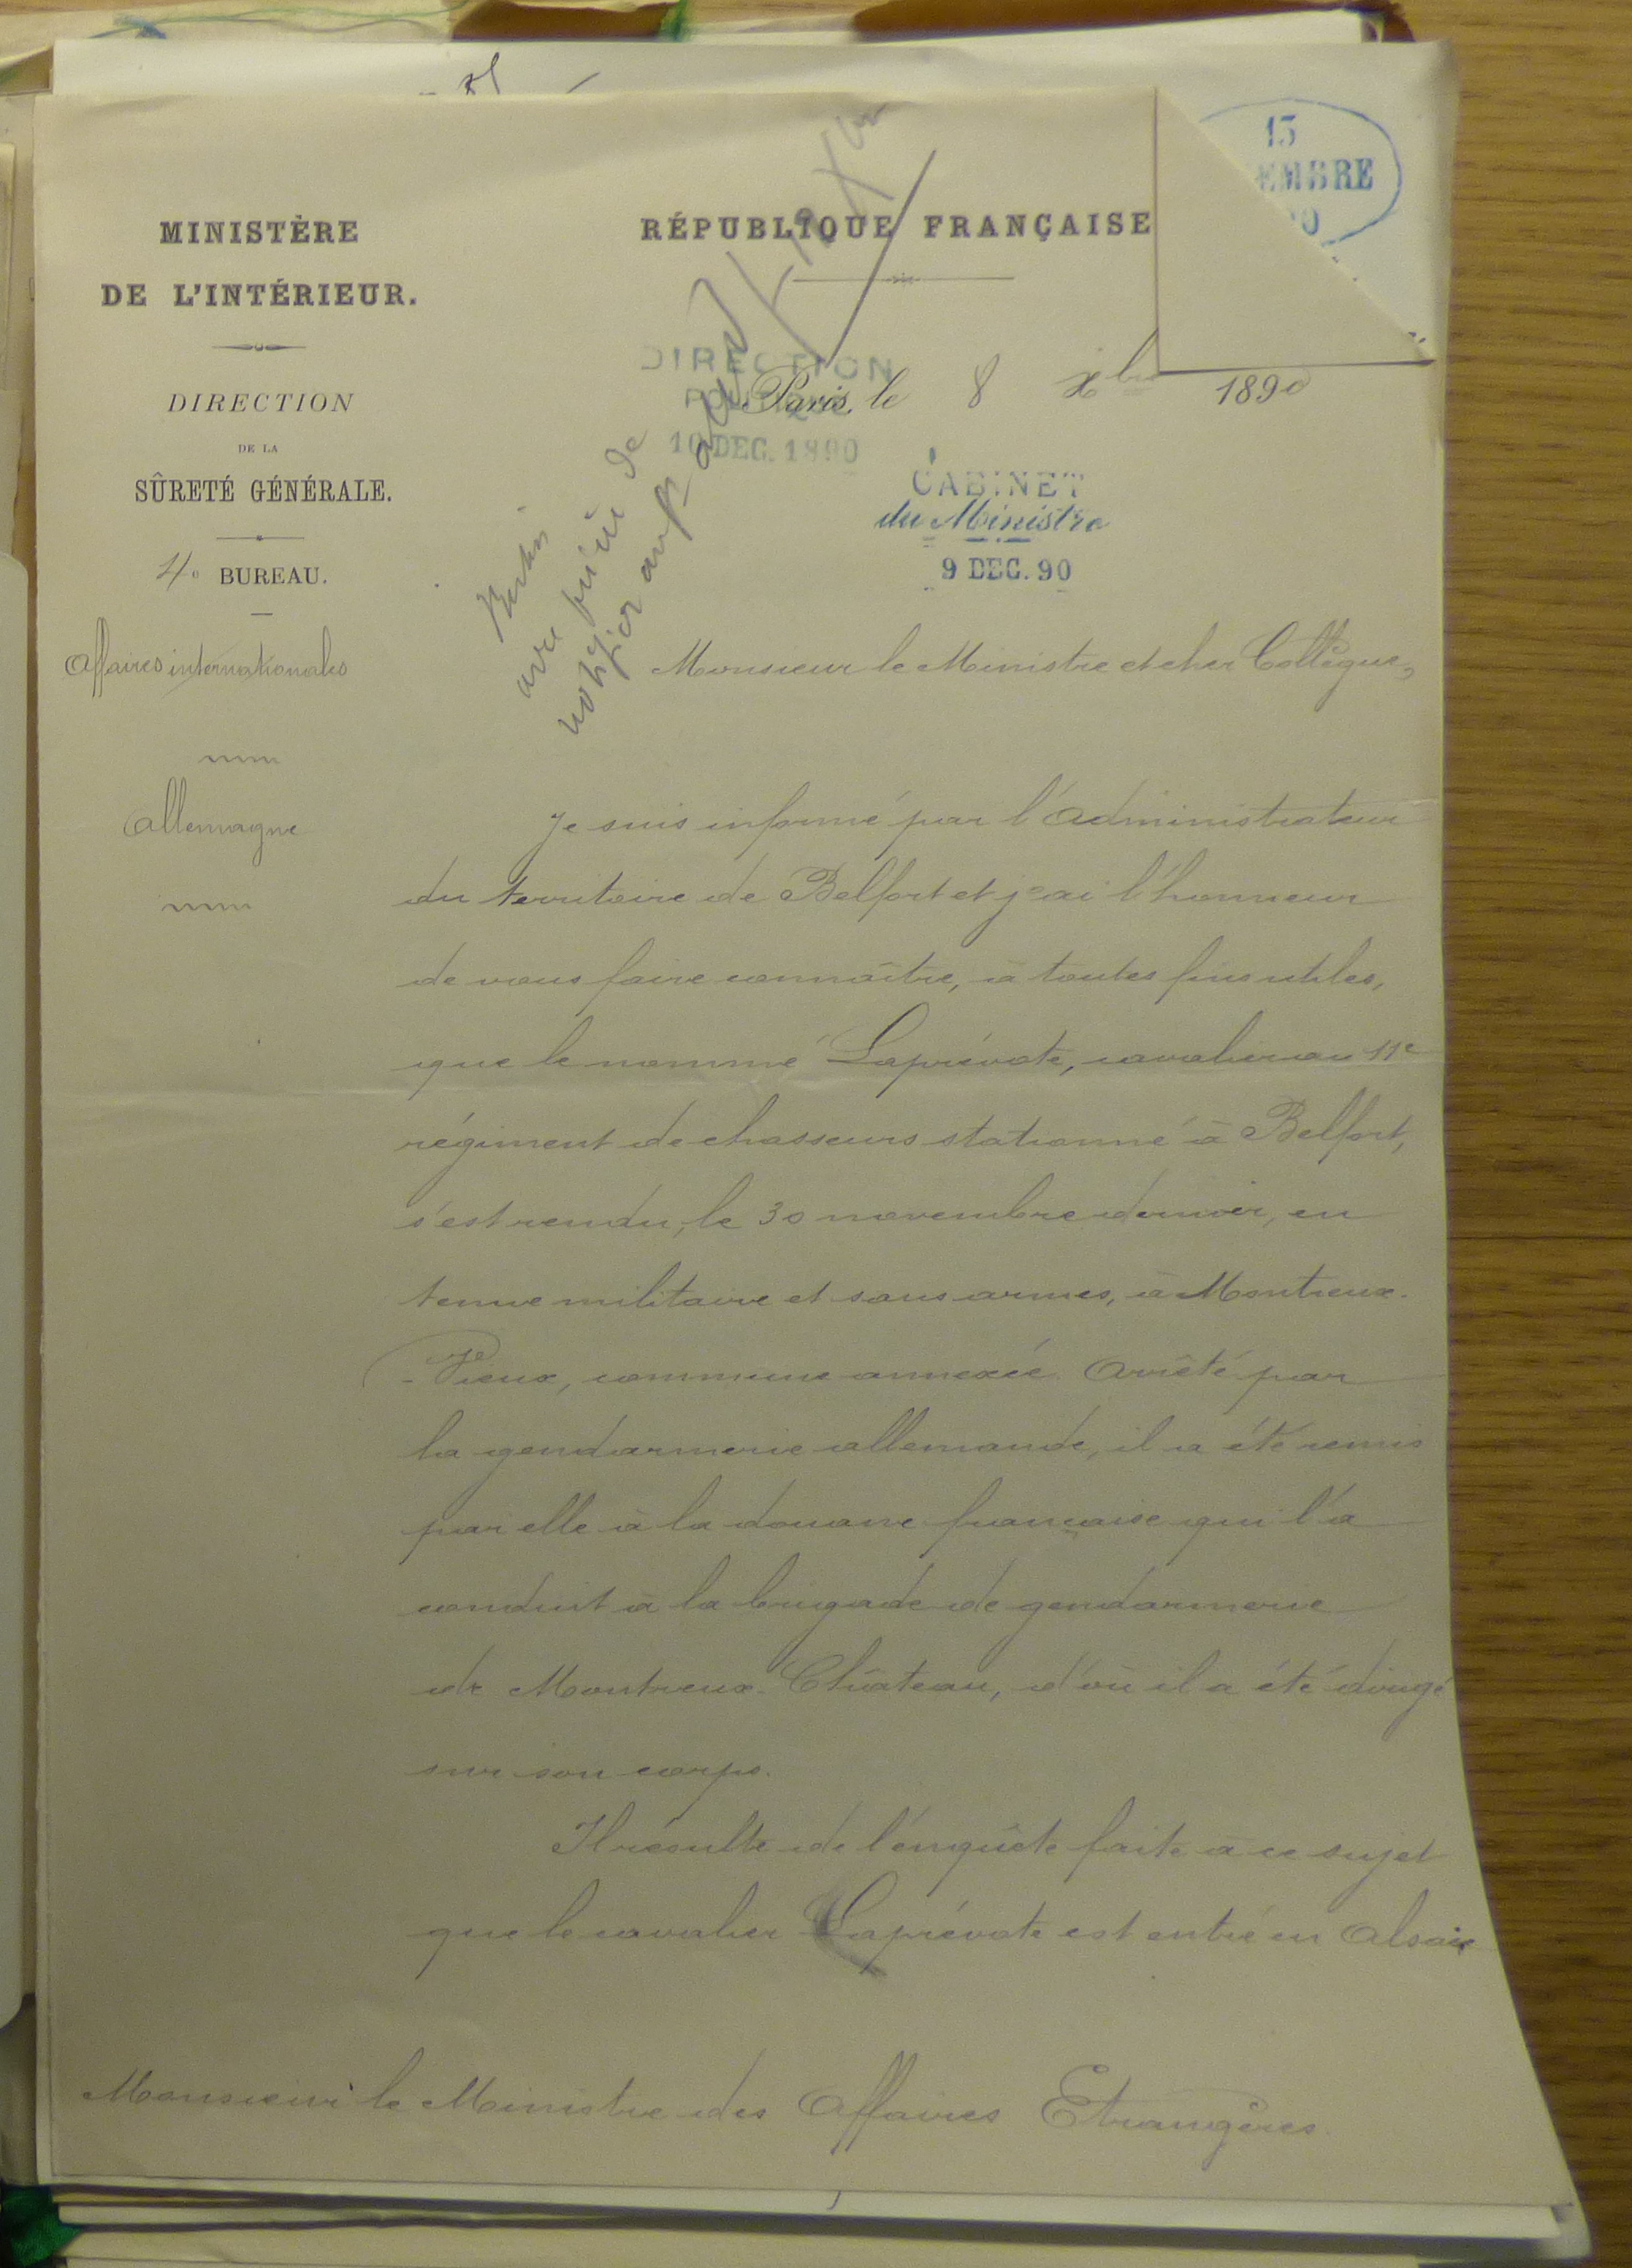 15
EMBRE
MINISTÈRE
DE L'INTÉRIEUR.
DIRECTION
DE LA
SÛRETÉ GÉNÉRALE.
4e BUREAU.
Affaires internationales
Allemagne
RÉPUBLIQUE FRANÇAISE
DIRECTION
POLITIQUE
10 DEC. 1890
Paris, le 8 Xbre 1890
CABINET
du Ministre
9 DEC. 90
Berlin
avec prière de
Monsieur le Ministre et cher Collègue,
Je suis informé par l'Administrateur
du territoire de Belfort et j'ai l'honneur
de vous faire connaître, à toutes fins utiles,
que le nommé Laprévote, cavalier au 11e
régiment de chasseurs stationné à Belfort,
s'est rendu, le 30 novembre dernier, en
tenue militaire et sans armes, à Montreux-
-Vieux, commune annexée. Arrêté par
la gendarmerie allemande, il a été remis
par elle à la douane française qui l'a
conduit à la brigade de gendarmerie
de Montreux-Château, d'où il a été dirigé
sur son corps.
Il résulte de l'enquête faite à ce sujet
que le cavalier Laprévote est entré en Alsace
Monsieur le Ministre des Affaires Etrangères